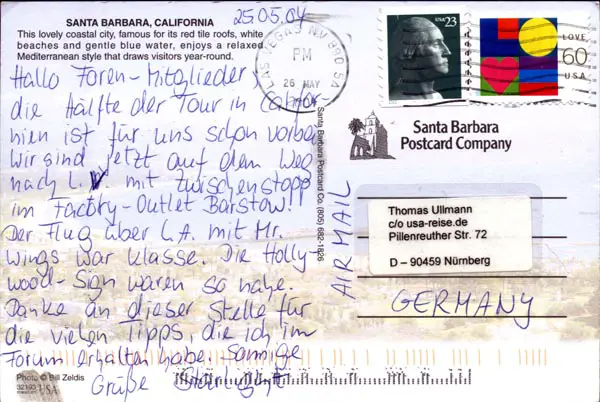 SANTA BARBARA, CALIFORNIA
This lovely coastal city, famous for its red tile roofs, white
beaches and gentle blue water, enjoys a relaxed
Mediterranean style that draws visitors year-round.
25.05.04
Hallo Foren-Mitglieder,
die Hälfte der Tour in Califor-
nien ist für uns schon vorbei.
Wir sind jetzt auf dem Weg
nach L.V mit Zwischenstopp
im Factory-Outlet Barstow!
Der Flug über L.A. mit Mr.
Wings war klasse. Die Holly-
wood-Sign waren so nahe.
Danke an dieser Stelle für
die vielen Tipps, die ich im
Forum erhalten habe. Sonnige
Grüße Starlight
Photo © Bill Zeldis
USA
LAS VEGAS NV 890
PM
26 MAY
USA 23
LOVE
60
USA
Santa Barbara
Postcard Company
Santa Barbara Postcard Co. (805) 682-1826
AIR MAIL
Thomas Ullmann
c/o usa-reise.de
Pillenreuther Str. 72
D – 90459 Nürnberg
GERMANY